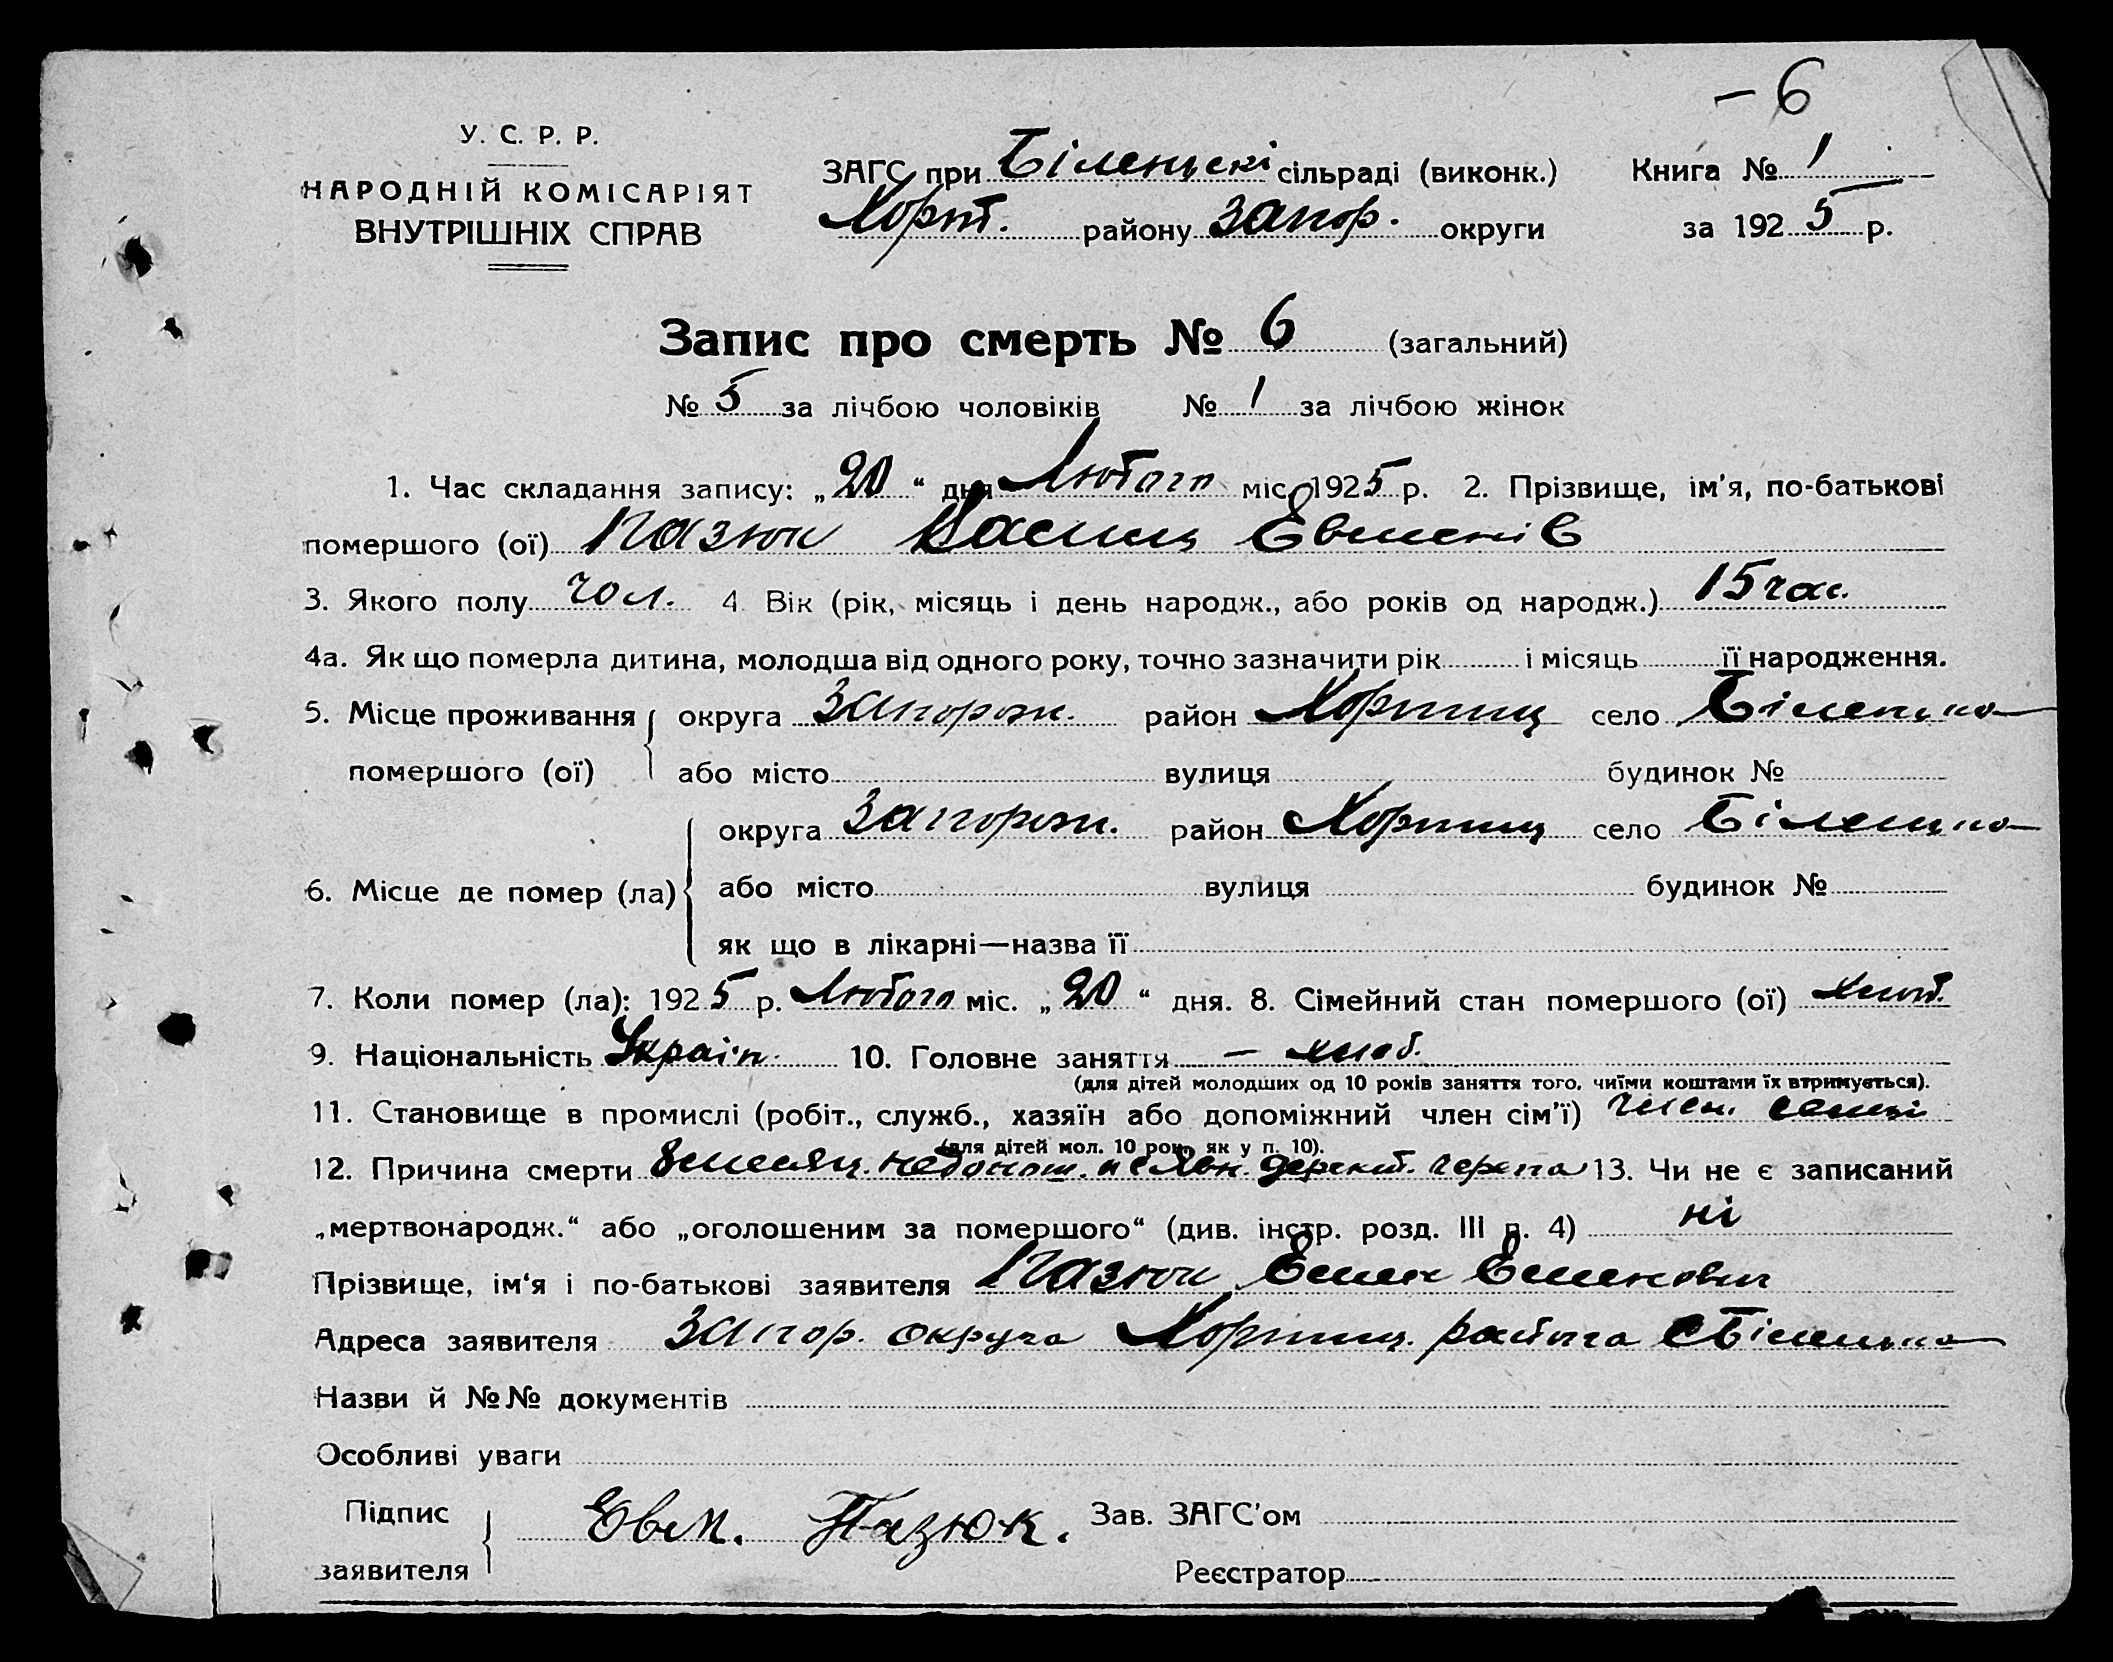 – 6
У. С. Р. Р.
НАРОДНІЙ КОМІСАРІЯТ
ВНУТРІШНІХ СПРАВ
ЗАГС при Біленцскі сільраді (виконк.) Книга № 1
Хорт. району Запор. округи за 1925 р.
Запис про смерть № 6 (загальний)
№ 5 за лічбою чоловіків № 1 за лічбою жінок
1. Час складання запису: „20“ дня Лютого міс. 1925 р. 2. Прізвище, ім’я, по-батькові
помершого (ої) Пазюк Василь Евменів
3. Якого полу чол. 4. Вік (рік, місяць і день народж., або років од народж.) 15 час.
4а. Як що померла дитина, молодша від одного року, точно зазначити рік і місяць її народження.
5. Місце проживання округа Запорож. район Хортиц село Біленцко
помершого (ої) або місто вулиця будинок №
округа Запорож. район Хортиц село Біленцко
6. Місце де помер (ла) або місто вулиця будинок №
як що в лікарні—назва її
7. Коли помер (ла): 1925 р. Лютого міс. „20“ дня. 8. Сімейний стан помершого (ої)
9. Національність Украін. 10. Головне заняття – хліб.
(для дітей молодших од 10 років заняття того, чиїми коштами їх втримується).
11. Становище в промислі (робіт., служб., хазяїн або допоміжний член сім’ї) член семьі
(для дітей мол. 10 рок. як у п. 10).
12. Причина смерти 8 месяц. недонош. черепа 13. Чи не є записаний
„мертвонародж.“ або „оголошеним за помершого“ (див. інстр. розд. III п. 4) ні
Прізвище, ім‘я і по-батькові заявителя Пазюк Евмен Евменович
Адреса заявителя Запор. округа Хортиц. района с Біленцко
Назви й №№ документів
Особливі уваги
Підпис заявителя Евм. Пазюк. Зав. ЗАГС’ом
Реєстратор